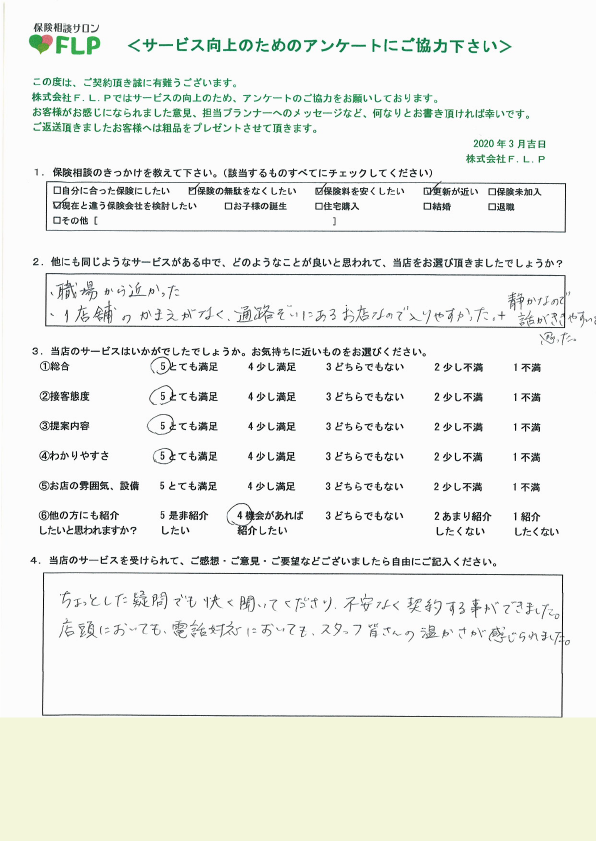 保険相談サロン
FLP
＜サービス向上のためのアンケートにご協力下さい＞
この度は、ご契約頂き誠に有難うございます。
株式会社Ｆ.Ｌ.Ｐではサービスの向上のため、アンケートのご協力をお願いしております。
お客様がお感じになられました意見、担当プランナーへのメッセージなど、何なりとお書き頂ければ幸いです。
ご返送頂きましたお客様へは粗品をプレゼントさせて頂きます。
2020年3月吉日
株式会社Ｆ.Ｌ.Ｐ
1．保険相談のきっかけを教えて下さい。(該当するものすべてにチェックしてください)
□自分に合った保険にしたい ☑保険の無駄をなくしたい ☑保険料を安くしたい ☑更新が近い □保険未加入
☑現在と違う保険会社を検討したい □お子様の誕生 □住宅購入 □結婚 □退職
□その他 [ ]
2．他にも同じようなサービスがある中で、どのようなことが良いと思われて、当店をお選び頂きましたでしょうか？
・職場から近かった
・1店舗のかまえがなく、通路ぞいにあるお店なので入りやすかった。+ 静かなので
話がききやすいと
思った。
3．当店のサービスはいかがでしたでしょうか。お気持ちに近いものをお選びください。
①総合 5とても満足 4少し満足 3どちらでもない 2少し不満 1不満
②接客態度 5とても満足 4少し満足 3どちらでもない 2少し不満 1不満
③提案内容 5とても満足 4少し満足 3どちらでもない 2少し不満 1不満
④わかりやすさ 5とても満足 4少し満足 3どちらでもない 2少し不満 1不満
⑤お店の雰囲気、設備 5とても満足 4少し満足 3どちらでもない 2少し不満 1不満
⑥他の方にも紹介 5是非紹介 4機会があれば 3どちらでもない 2あまり紹介 1紹介
したいと思われますか？ したい 紹介したい したくない したくない
4．当店のサービスを受けられて、ご感想・ご意見・ご要望などございましたら自由にご記入ください。
ちょっとした疑問でも快く聞いてくださり、不安なく契約する事ができました。
店頭においても、電話対応においても、スタッフ皆さんの温かさが感じられました。